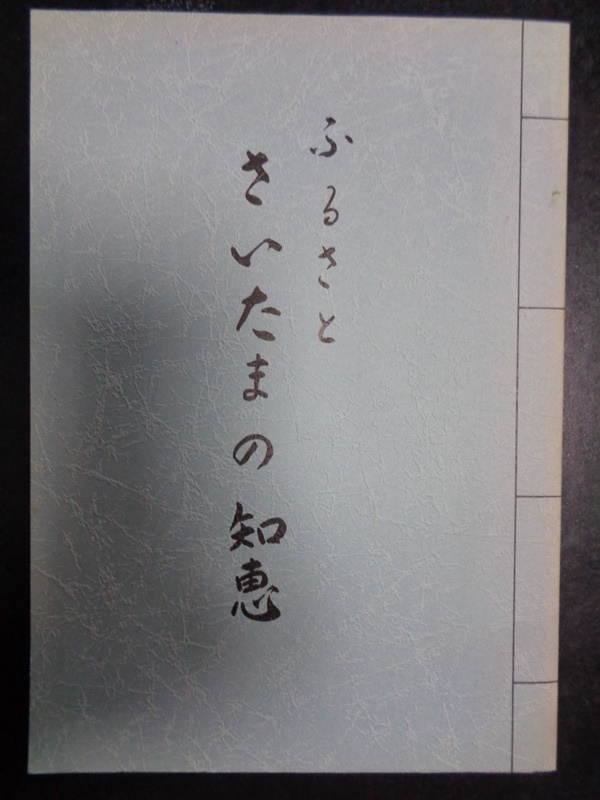 ふるさと
さいたまの知恵